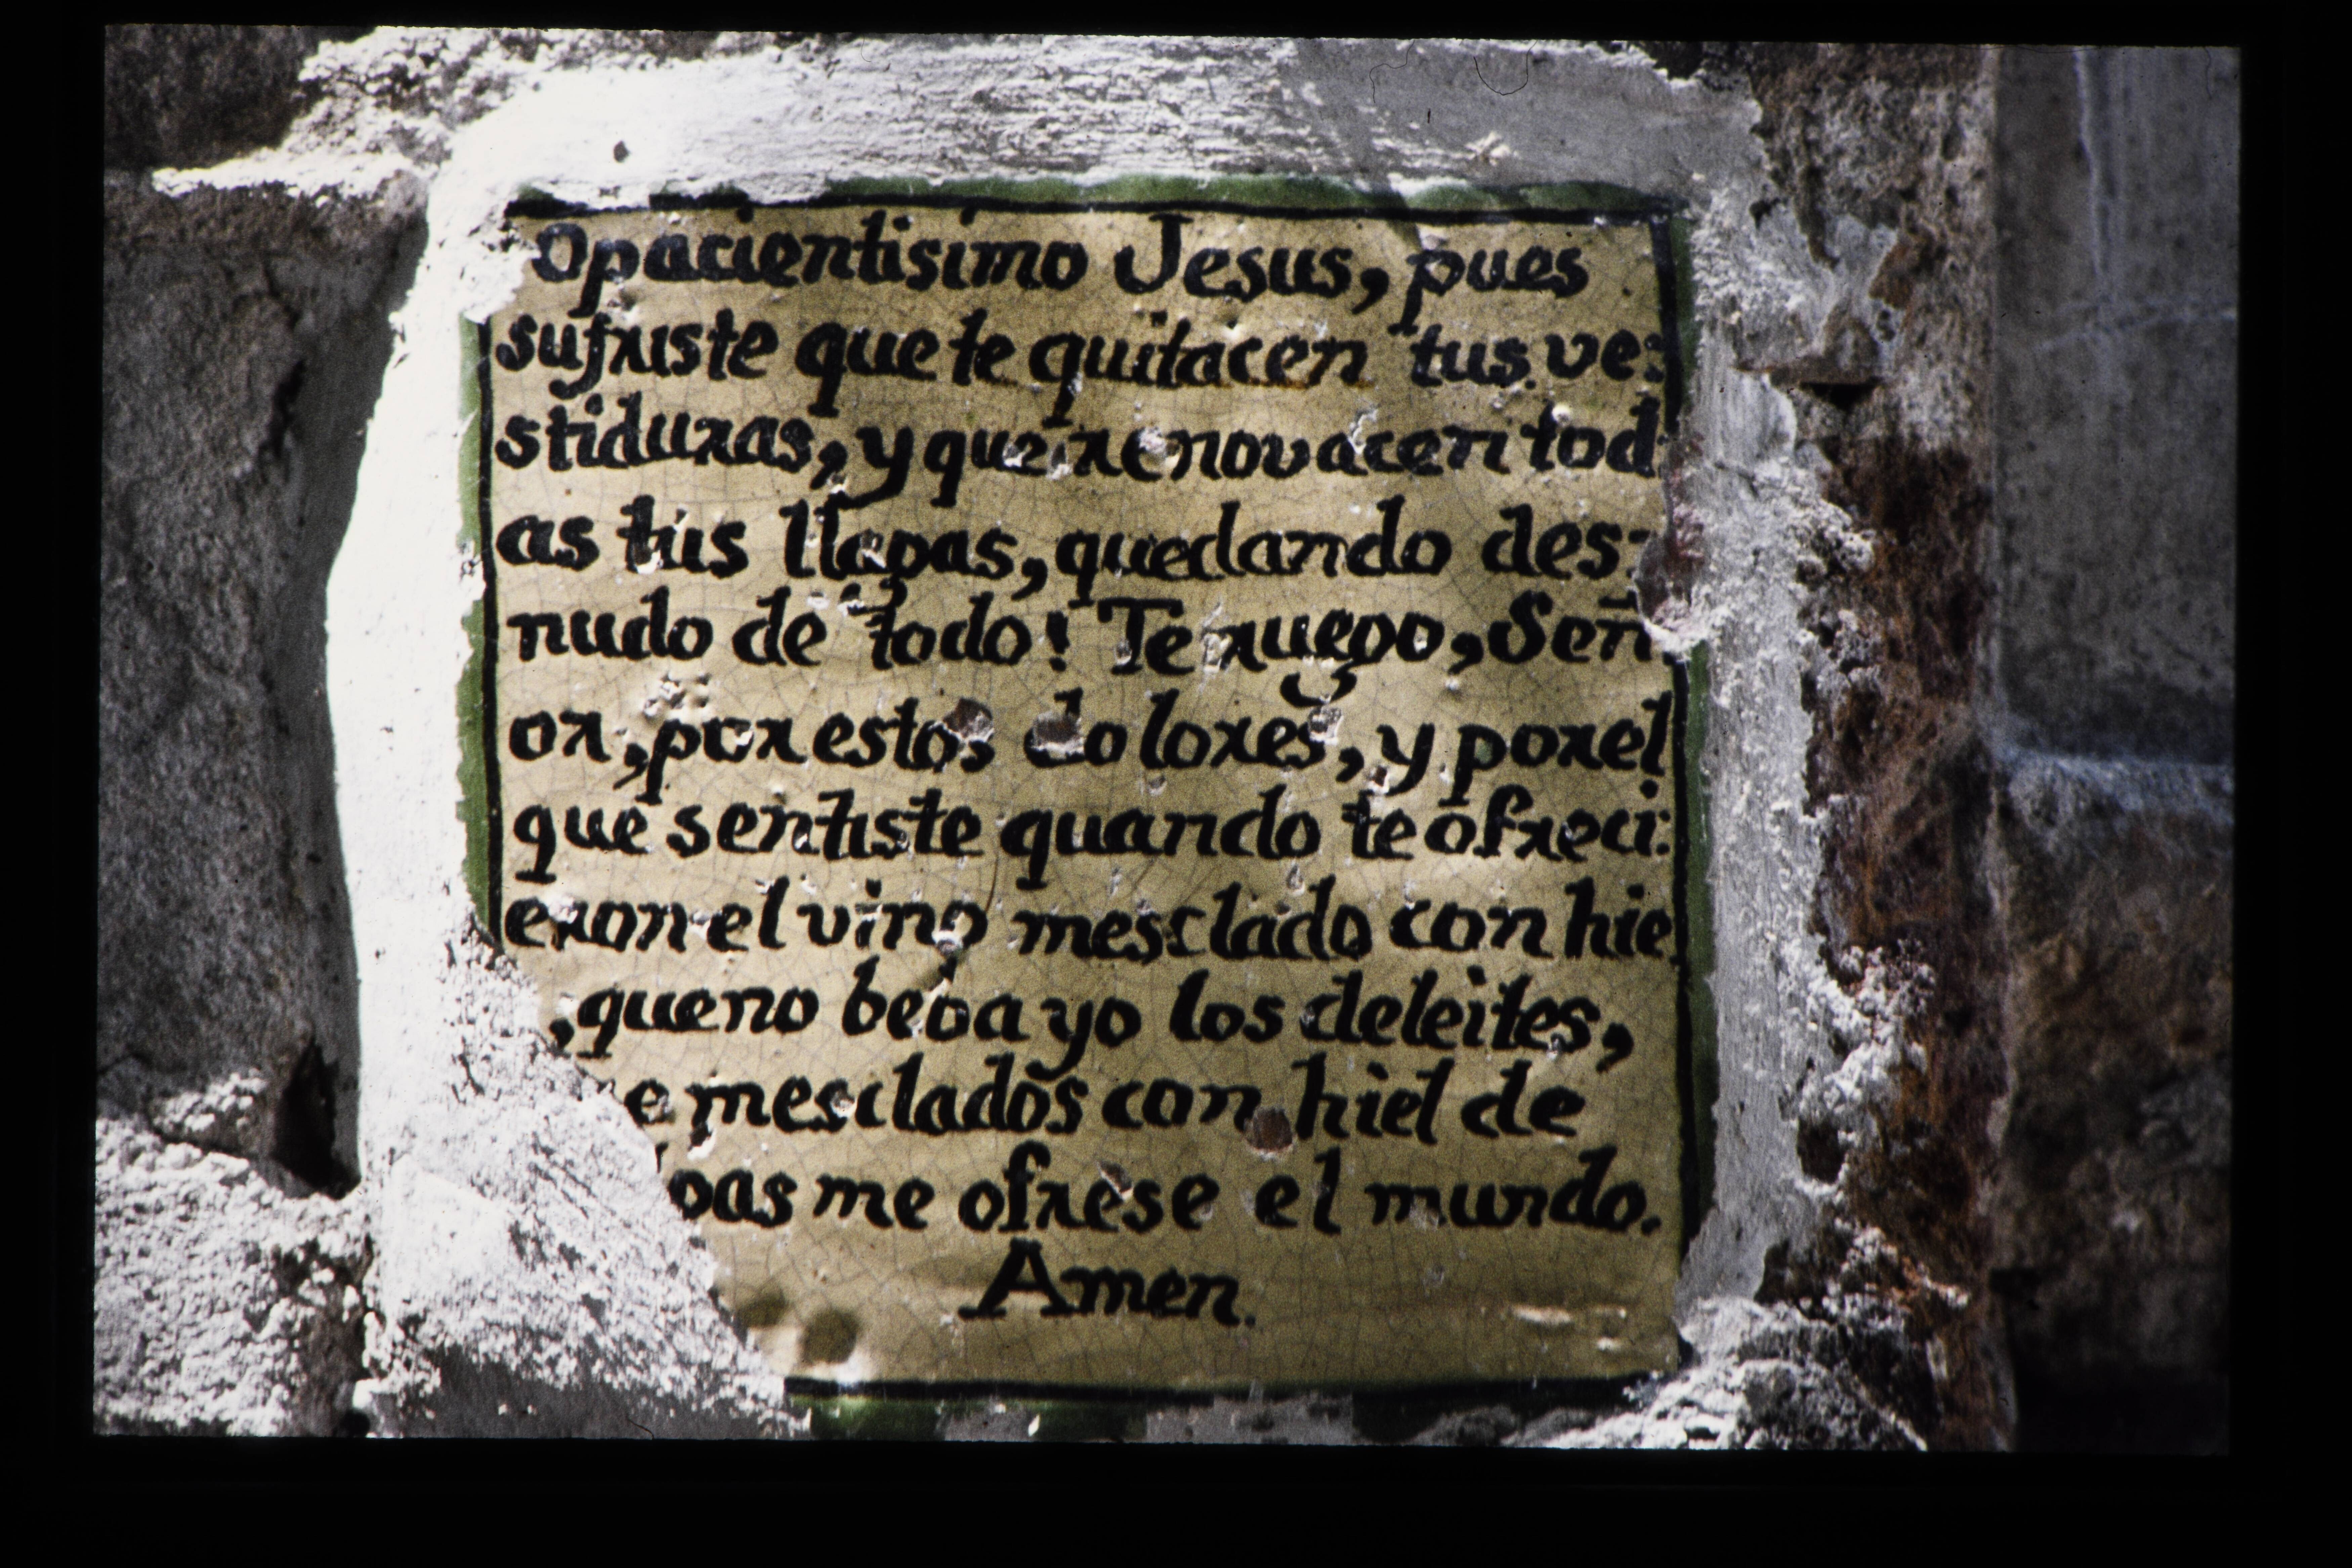 Opacientisimo Jesus, pues
sufriste que te quitacen tus ve:
stiduras, y que renovacen tod
as tus llagas, quedando des:
nudo de todo! Te ruego, Señ
or, por estos dolores, y por el
que sentiste quando te ofreci:
eron el vino mesclado con hie
, que no beba yo los deleites,
e mesclados con hiel de
pas me ofrese el mundo.
Amen.